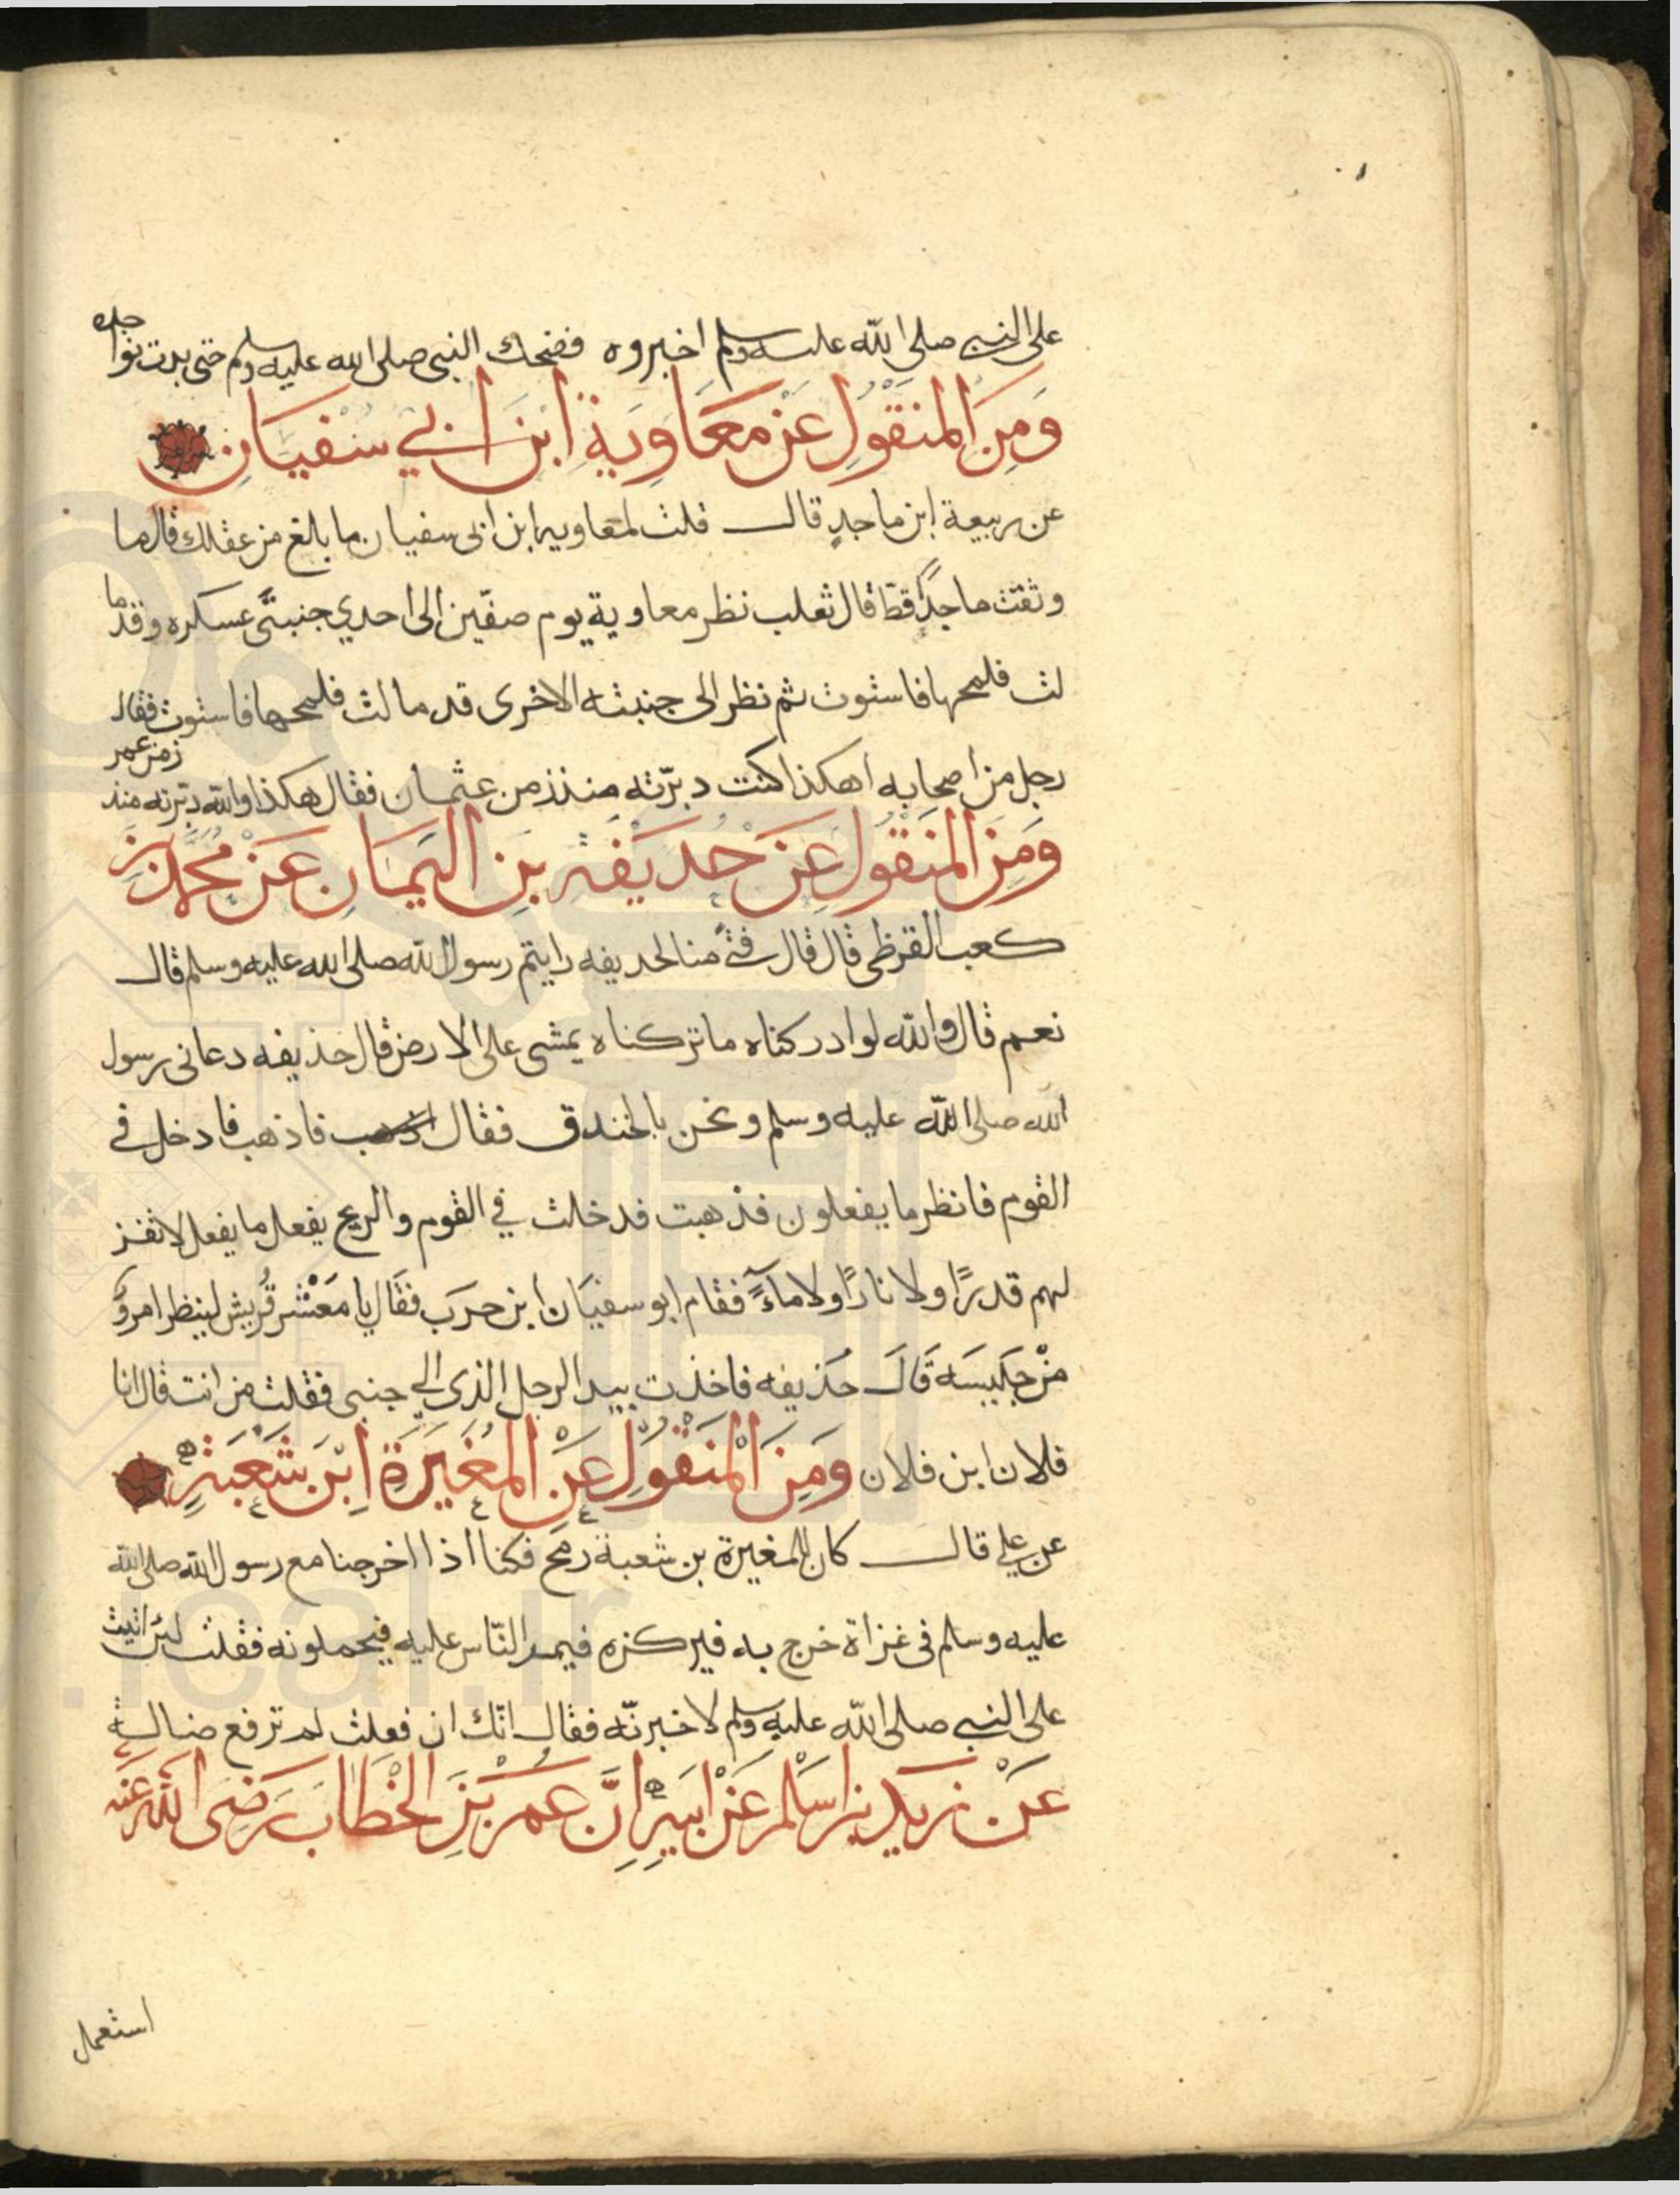 على النبى صلى الله عليه وسلم اخبروه فضحك النبى صلى الله عليه وسلم حتى بدت نواجذه
وَمِنَ المنقُولِ عَن معَاوِيَة ابن ابي سفيَان
عن ربيعة ابن ماجدٍ قال قلت لمعاويه ابن ابى سفيان ما بالغ من عقلك قال ما
وثقت ماجدًا قط قال ثعلب نظر معاوية يوم صفّين الى احدي جنبتَى عسكره وقد ما
لت فلمحها فاستوت ثم نظر الى جنبته الاخرى قد مالت فلمحها فاستوت فقال
رجل من اصحابه اهكذا كنت دبّرته منذ زمن عثمان فقال هكذا والله دبّرته منذ زمن عمر
وَمِنَ المنقُول عَن حُديفه بن اليمَان عَن محمد بن
كعب القرظى قال قال فتًى منا لحديفه رايتم رسول الله صلى الله عليه وسلم قال
نعم قال والله لو ادركناه ما تركناه يمشى على الارض قال حذيفه دعانى رسول
الله صلى الله عليه وسلم ونحن بالخندق فقال اذهب فاذهب فادخل في
القوم فانظر ما يفعلون فذهبت فدخلت في القوم والريح يفعل ما يفعل لا تفز
لهم قدرًا ولا نارًا ولا ماءً فقام ابو سفيَان ابن حرَب فقَال يا مَعْشر قُريش لينظر امروٌ
مَنْ جَليسَه قَالَ حُذيفه فاخذت بيد الرجل الذى الي جنبى فقلت من انت قال انا
فلان ابن فلان وَمِنَ المنقُولِ عَن المغيَرَة ابن شعَبَة
عن علي قال كان للمغيرة بن شعبة رمح فكنا اذا اخرجنا مع رسول الله صلى الله
عليه وسلم فى غزاة خرج به فيركزه فيمر النّاس عليه فيحملونه فقلت لئن اتيت
على النبى صلى الله عليه وسلم لاخبرنّه فقال انّك ان فعلت لم ترفع ضالة
عَنْ زيد بن اسلم عَن ابيهِ اِنَّ عُمَر بنِ الخطاب رَضى الله عَنه
استعمل